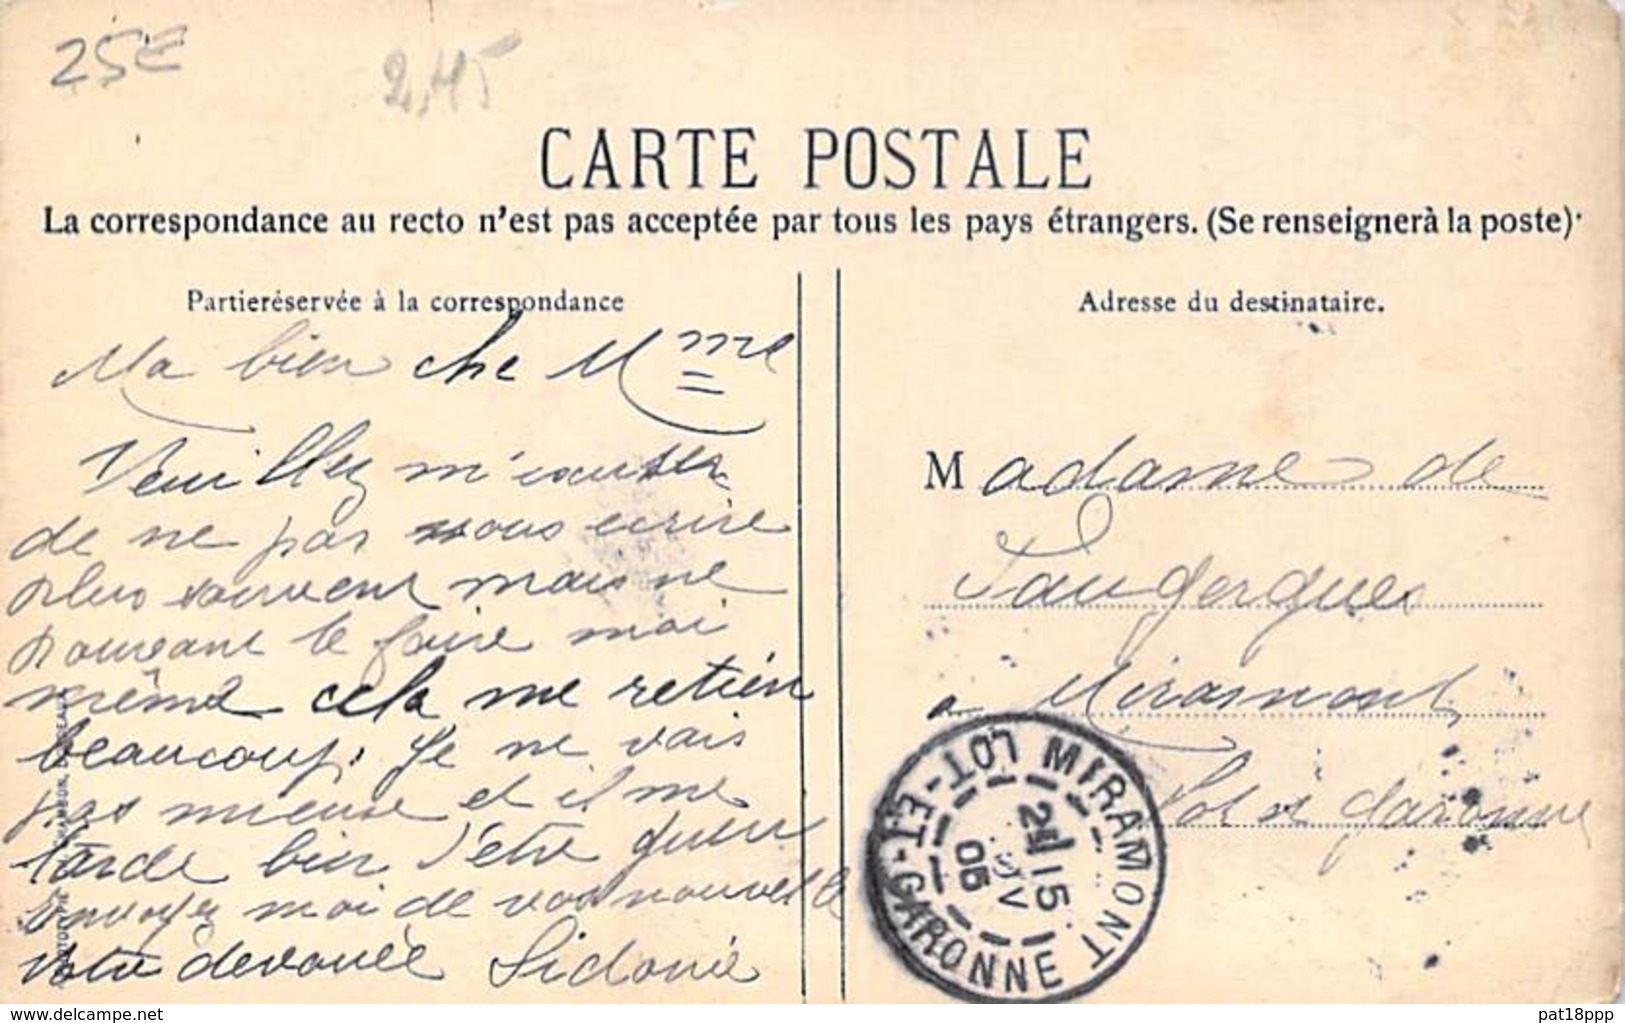 25€
2,45
CARTE POSTALE
La correspondance au recto n'est pas acceptée par tous les pays étrangers. (Se renseigner à la poste)
Partie réservée à la correspondance
Adresse du destinataire.
Ma bien che Mme
Veuillez m'excuser
de ne pas vous ecrire
plus souvent mais ne
pouvant le faire moi
même cela me retien
beaucoup. Je ne vais
pas mieux et il me
tarde bien d'etre guerri
envoyez moi de vos nouvelle
Votre devouée Sidonie
Madame de
Faugergues
a Miramont
Lot et Garonne
MIRAMONT
LOT-ET-GARONNE
15
05
www.delcampe.net
pat18ppp